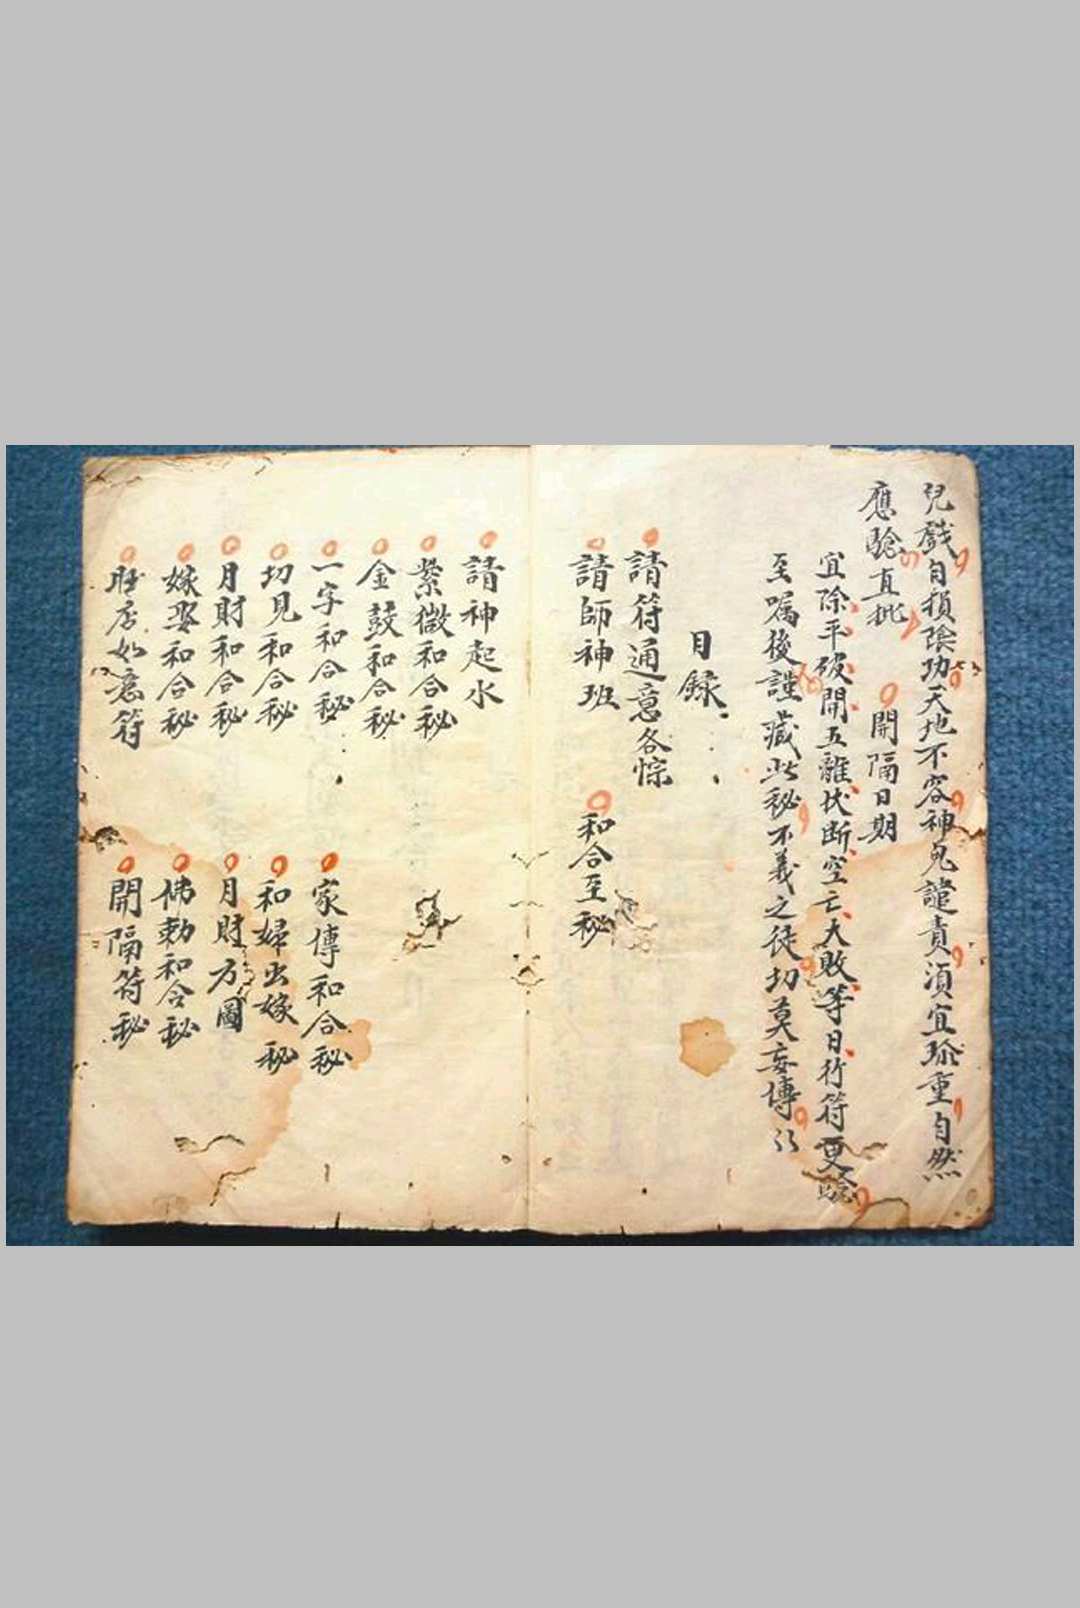 兒戲自損陰功天地不容神鬼譴責須宜珎重自然
應驗直挑　開隔日期
宜除平破開五離伏断空亡大敗等日行符更驗
至囑後謹藏此秘不義之徒切莫妄傳
目錄
請符通意各悰
請師神班　和合至秘
請神起水
紫微和合秘
金鼓和合秘
一字和合秘　家傳和合秘
切見和合秘　和婦出嫁秘
月財和合秘　月財方圖
嫁娶和合秘　佛勅和合秘
如意符　開隔符秘